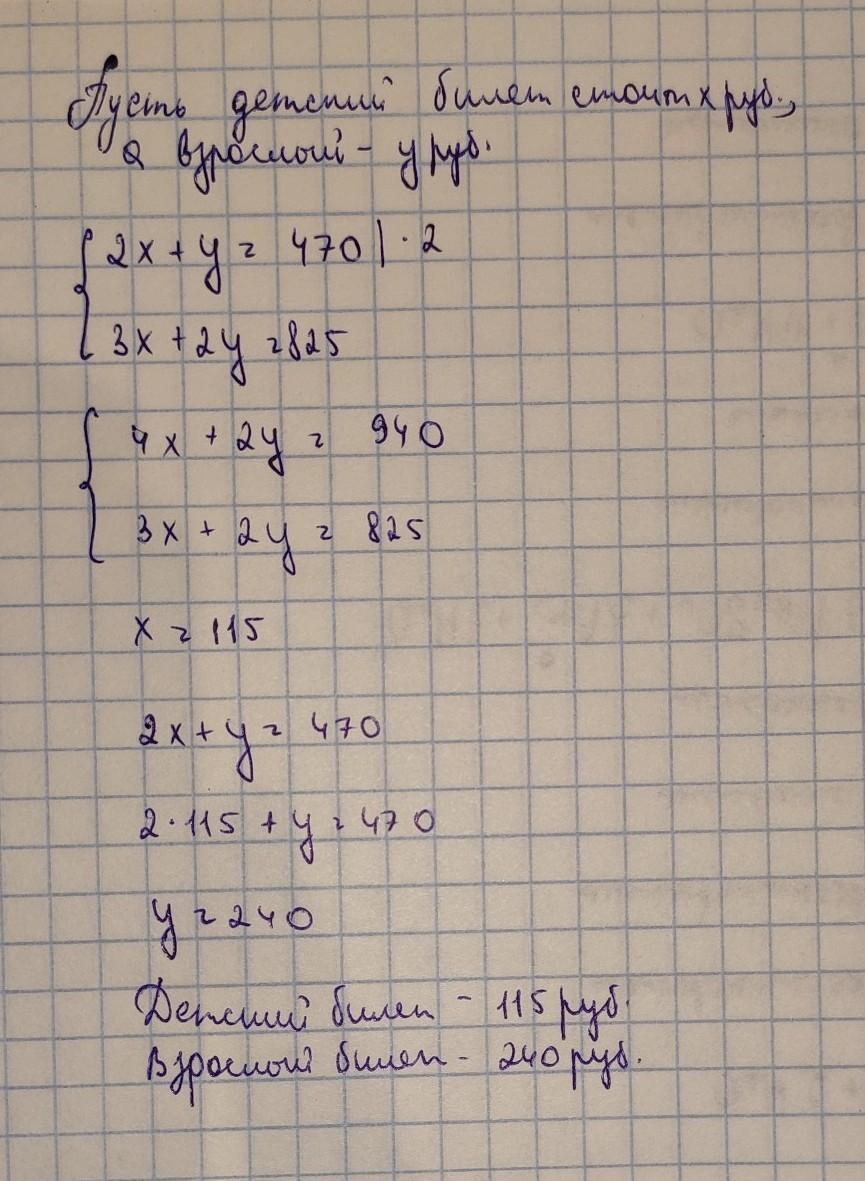 Пусть детский билет стоит x руб.,
а взрослый - y руб.
{ 2x + y = 470 | · 2
3x + 2y = 825
{ 4x + 2y = 940
3x + 2y = 825
x = 115
2x + y = 470
2 · 115 + y = 470
y = 240
Детский билет - 115 руб.
Взрослый билет - 240 руб.